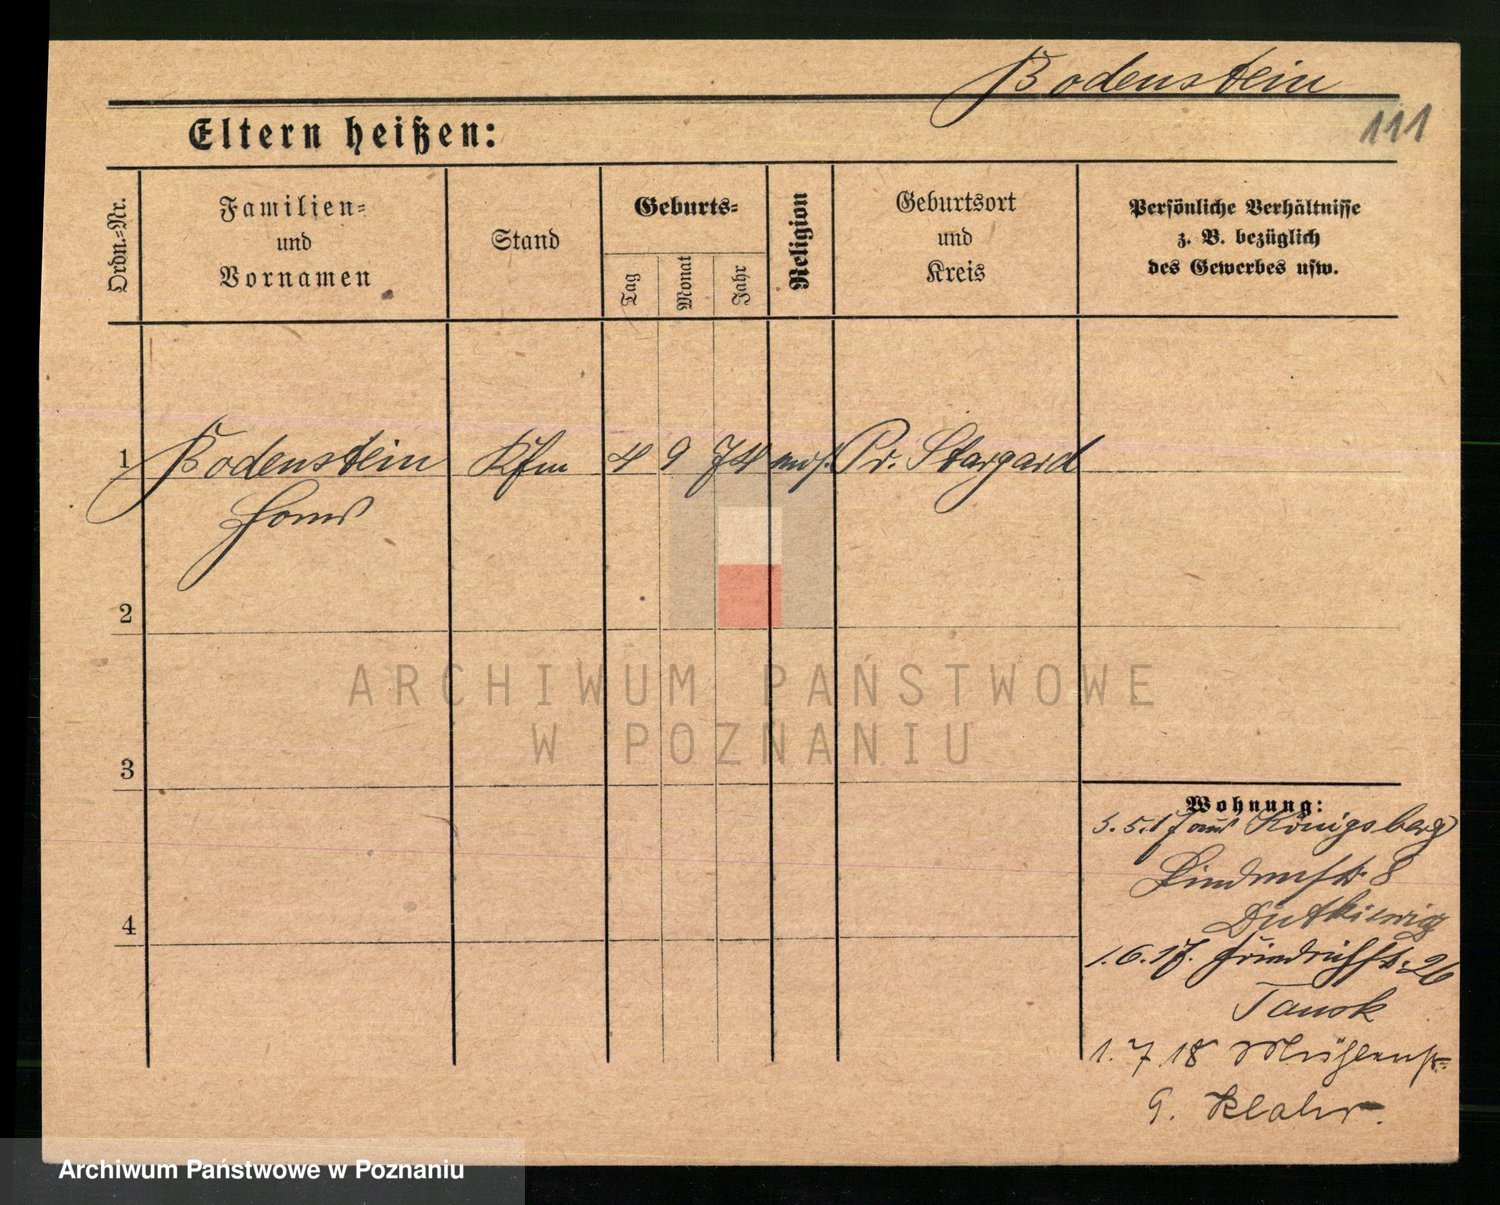 Bodenstein
111
Eltern heißen:
Ordn.=Nr.
Familien=
und
Vornamen
Stand
Geburts=
Tag
Monat
Jahr
Religion
Geburtsort
und
Kreis
Persönliche Verhältnisse
z. B. bezüglich
des Gewerbes usw.
1 Bodenstein Kfm 4 9 74 mos. Pr. Stargard
2
3
4
Wohnung:
3.5.17 aus Königsberg
8
1.6.17. Friedrichstr. 26
1.7.18 Mühlenstr.
9.
ARCHIWUM PAŃSTWOWE
W POZNANIU
Archiwum Państwowe w Poznaniu